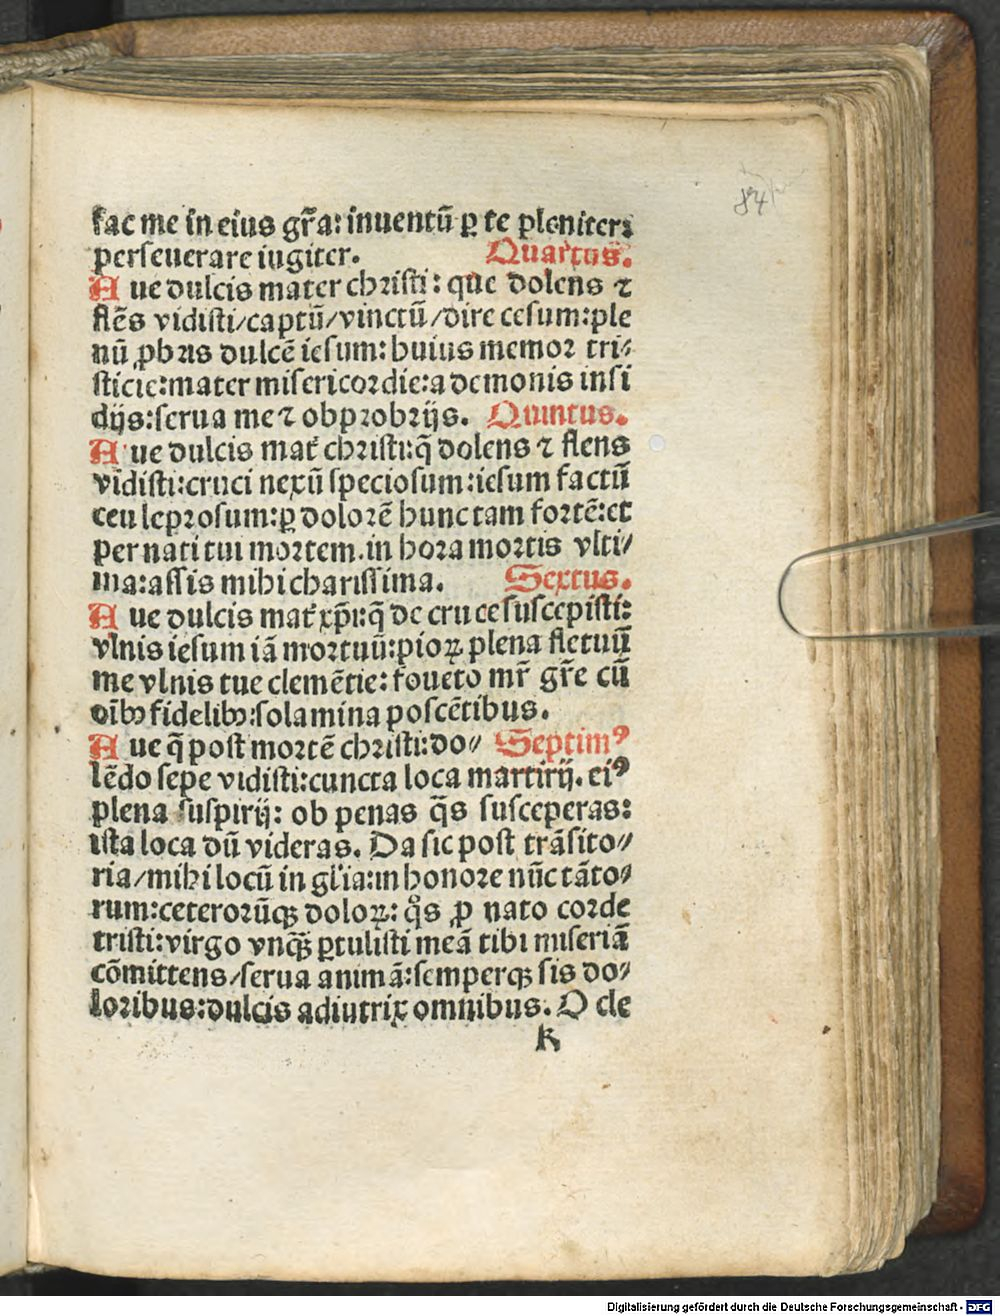 84
fac me in eius gr̃a: inuentũ ꝑ te pleniter:
perseuerare iugiter. Quartus.
Aue dulcis mater christi: que dolens ⁊
flẽs vidisti/captũ/vinctũ/dire cesum:ple
nũ ꝓbris dulcẽ iesum: huius memor tri⸗
sticie:mater misericordie:a demonis insi
dijs:serua me ⁊ obprobrijs. Quintus.
Aue dulcis mat̃ christi:q̃ dolens ⁊ flens
vidisti:cruci nexũ speciosum:iesum factũ
ceu leprosum:ꝑ dolorẽ hunc tam fortẽ:et
per nati tui mortem.in hora mortis vlti⸗
ma:assis mihi charissima. Sextus.
Aue dulcis mat̃ xp̃i:q̃ de cruce suscepisti:
vlnis iesum iã mortuũ:pioꝝ plena fletuũ
me vlnis tue clemẽtie: foueto mr̃ gr̃e cũ
oĩbꝫ fidelibꝫ:solamina poscẽtibus.
Aue q̃ post mortẽ christi:do⸗ Septimꝰ
lẽdo sepe vidisti:cuncta loca martirij. eiꝰ
plena suspirij: ob penas q̃s susceperas:
ista loca dũ videras. Da sic post trãsito⸗
ria/mihi locũ in gl̃ia:in honore nũc tãto⸗
rum:ceterorũqꝫ doloꝝ: q̊s ꝓ nato corde
tristi:virgo vnqꝫ̃ ꝑtulisti meã tibi miseriã
cõmittens/serua animã:semperqꝫ sis do⸗
loribus:dulcis adiutrix omnibus. O cle
k
Digitalisierung gefördert durch die Deutsche Forschungsgemeinschaft - DFG